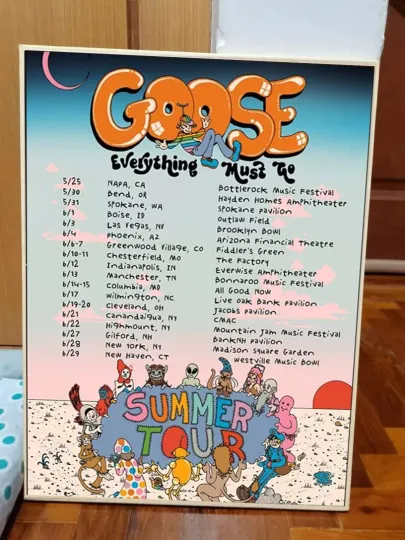 GOOSE
Everything Must Go
5/25 NAPA, CA Bottlerock Music Festival
5/30 Bend, OR Hayden Homes Amphitheater
5/31 Spokane, WA Spokane Pavilion
6/1 Boise, ID Outlaw Field
6/3 Las Vegas, NV Brooklyn Bowl
6/4 Phoenix, AZ Arizona Financial Theatre
6/6-7 Greenwood Village, CO Fiddler's Green
6/10-11 Chesterfield, MO The Factory
6/12 Indianapolis, IN Everwise Amphitheater
6/13 Manchester, TN Bonnaroo Music Festival
6/14-15 Columbia, MD All Good Now
6/17 Wilmington, NC Live Oak Bank Pavilion
6/19-20 Cleveland, OH Jacobs Pavilion
6/21 Canandaigua, NY CMAC
6/22 Highmount, NY Mountain Jam Music Festival
6/27 Gilford, NH BankNH Pavilion
6/28 New York, NY Madison Square Garden
6/29 New Haven, CT Westville Music Bowl
SUMMER
TOUR